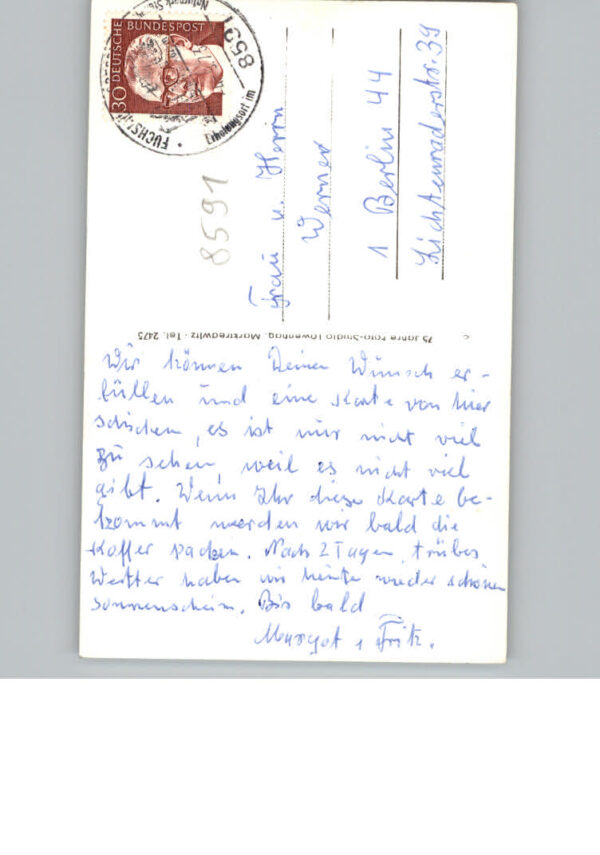 30 DEUTSCHE BUNDESPOST
8591
Erholungsort im
Naturpark
8591
Frau u. Herrn
Werner
1 Berlin 44
Lichtenraderstr. 39
75 Jahre Foto-Studio Löwenhag, Marktredwitz · Tel. 2475
Wir können Deinen Wunsch er-
füllen und eine Karte von hier
schicken, es ist nur nicht viel
zu sehen, weil es nicht viel
gibt. Wenn Ihr diese Karte be-
kommt werden wir bald die
Koffer packen. Nach 2 Tagen trübes
Wetter haben wir heute wieder schönen
Sonnenschein. Bis bald
Margot u Fritz.